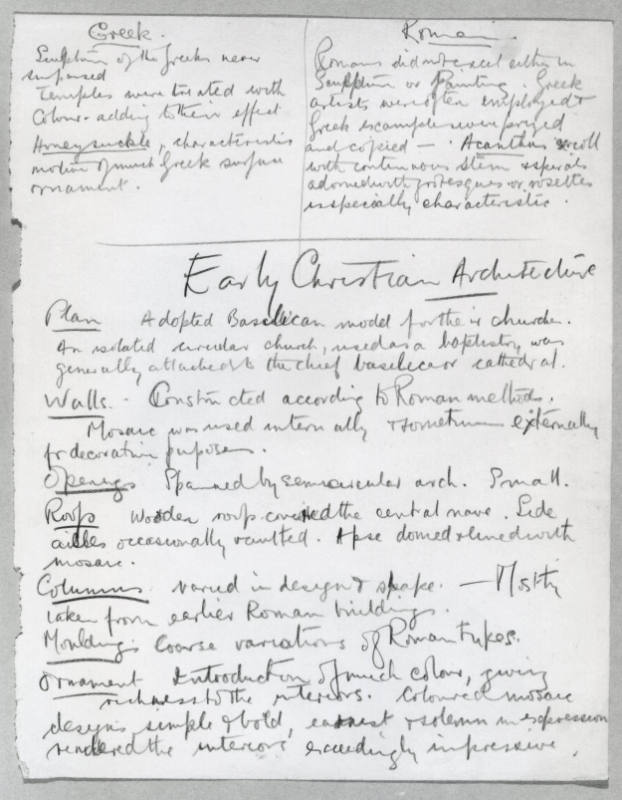 Greek.
Sculpture of the Greeks never
surpassed
Temples were treated with
Colour - adding to their effect
Honeysuckle, characteristic
motive of much Greek surface
ornament.
Roman.
Romans did not excel either in
Sculpture or Painting. Greek
artists were often employed &
Greek examples were prized
and copied — . Acanthus scroll
with continuous stem & spirals
adorned with grotesques or rosettes
is specially characteristic.
Early Christian Architecture
Plan Adopted Basilican model for their churches.
An isolated circular church, used as a baptistry, was
generally attached to the chief basilica or cathedral.
Walls. - Constructed according to Roman methods.
Mosaic was used internally & sometimes externally
for decorative purposes.
Openings Spanned by semicircular arch. Small.
Roofs Wooden roofs covered the central nave. Side
aisles occasionally vaulted. Apse domed & lined with
mosaic.
Columns. varied in design & shape. — Mostly
taken from earlier Roman buildings.
Mouldings Coarse variations of Roman types.
Ornament Introduction of much colour, giving
richness to the interiors. Coloured mosaic
designs, simple & bold, earnest & solemn in expression
rendered the interiors exceedingly impressive.